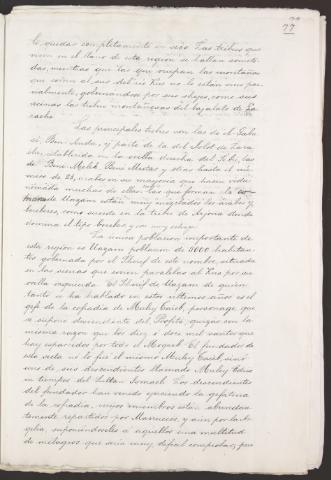 77
77
lo queda completamente en sido. Las tribus que
viven en el llano de esta region se hallan someti-
das, mientras que las que ocupan las montañas
que corren al sur del rio Kus no lo están mas
nalmente, gobernandose por sus algos, como sus
vecinas las tribus montañosas del bajalato de La-
rache.
Las principales tribus son las de el Gabs
si, Ben-Auda, y parte de la del Jolot de Lara-
che, establecida en la orilla derecha del Sebú, las
de Beni-Melek, Beni Mestas y otras hasta el nú-
mero de 28, arabes en su mayoria que hacen vida
nómada muchas de ellas. Las que forman la
de Uazam están muy mezclados los arabes y
bereberes, como sucede en la tribu de Arjona donde
domina el tipo bereber, y son muy salvajes.
La única poblacion importante de
esta region es Uazam poblacion de 8000 habitan-
tes gobernada por el Scherif de este nombre, situada
en las sierras que corren paralelas al Kus por su
orilla izquierda. El Scherif de Uazam de quien
tanto se ha hablado en estos ultimos años es el
gefe de la cofradia de Muley Taieb, personage que
se supone descendiente del Profeta, quizás con la
misma razon que los diez o doce mil santos que
hay esparcidos por todo el Mogreb. El fundador de
esta secta no lo fué el mismo Muley Taieb, sinó
uno de sus descendientes llamado Muley Edris
en tiempos del Sultan Ismael. Los descendientes
del fundador han venido ejerciendo la gefatura
de la cofradia, cuyos miembros están abundan-
temente repartidos por Marruecos y aun por la Ar-
gelia, suponiendoseles á aquellos una multitud
de milagros que seria muy dificil comprobar, pero